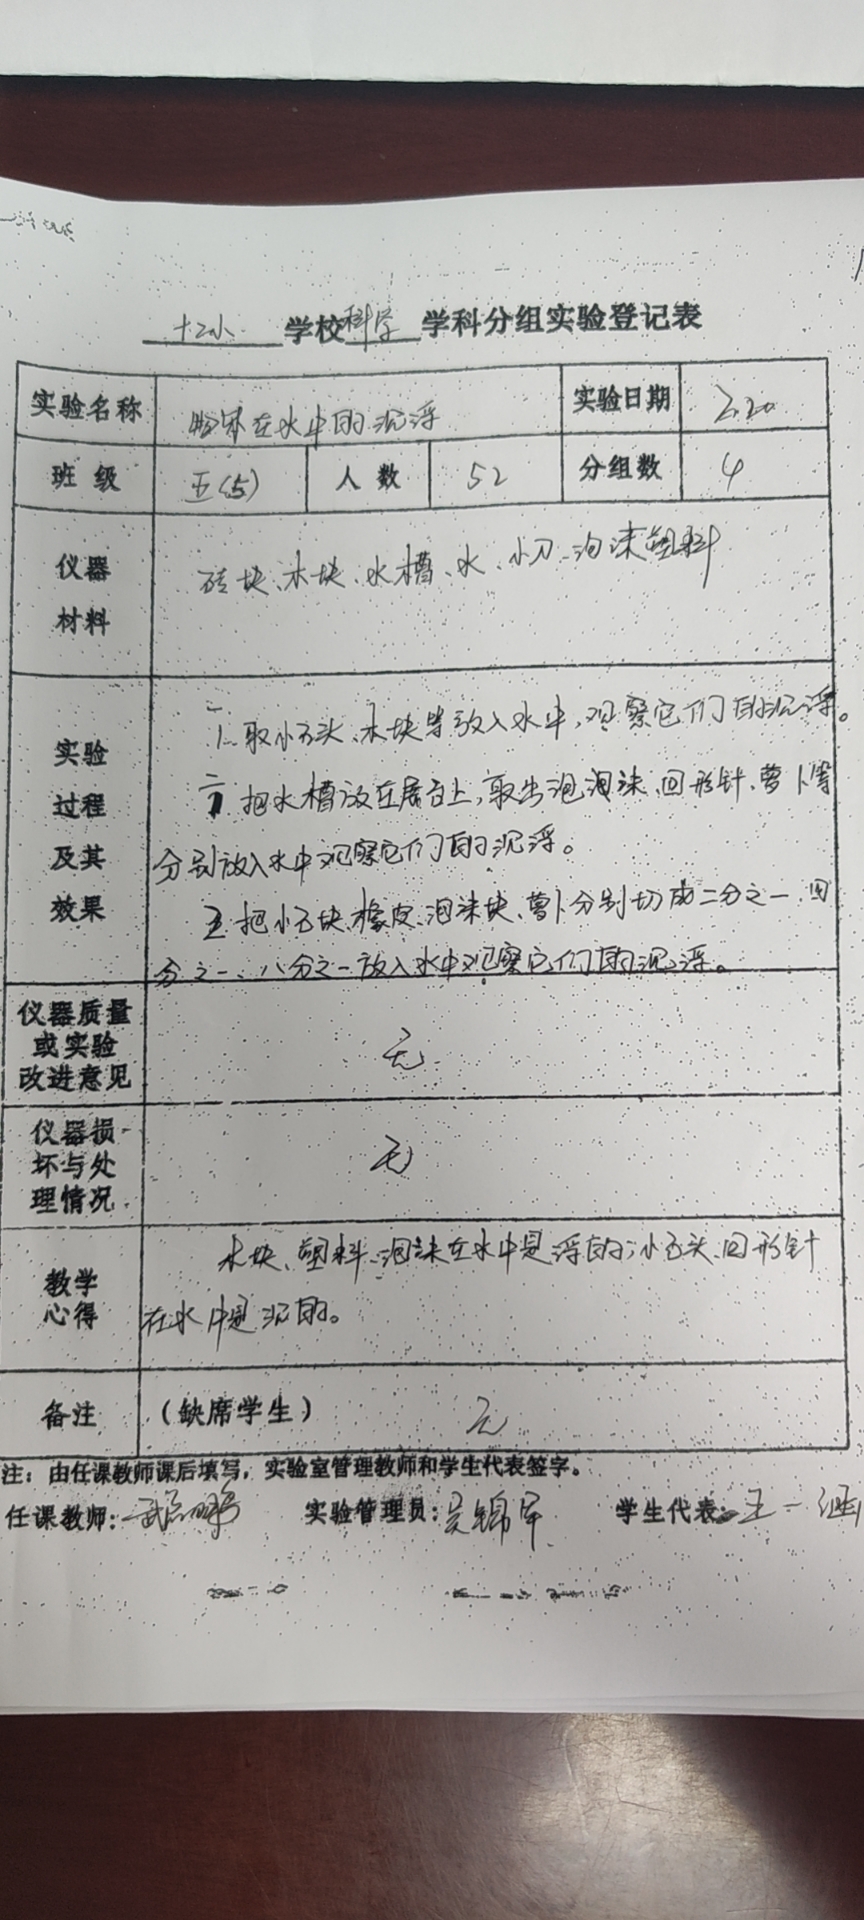 十二小 学校 科学 学科分组实验登记表
实验名称 物体在水中的沉浮 实验日期 2.20
班 级 五(5) 人 数 52 分组数 4
仪器
材料
砖块、木块、水槽、水、小刀、泡沫塑料
实验
过程
及其
效果
1.取小石头、木块等放入水中,观察它们的沉浮。
把水槽放在展台上,取出泡泡沫、回形针、萝卜等
分别放入水中观察它们的沉浮。
把小石块、橡皮、泡沫块、萝卜分别切成二分之一、四
分之一、八分之一放入水中观察它们的沉浮。
仪器质量
或实验
改进意见
无
仪器损
坏与处
理情况
无
教学
心得
木块、塑料、泡沫在水中是浮的;小石头、回形针
在水中是沉的。
备注 (缺席学生) 无
注:由任课教师课后填写,实验室管理教师和学生代表签字。
任课教师: 实验管理员:吴锦军 学生代表:王一涵